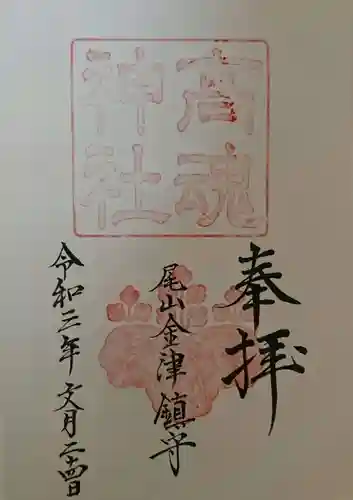 高魂
神社
奉拝
尾山金津鎮守
令和三年 文月二十四日